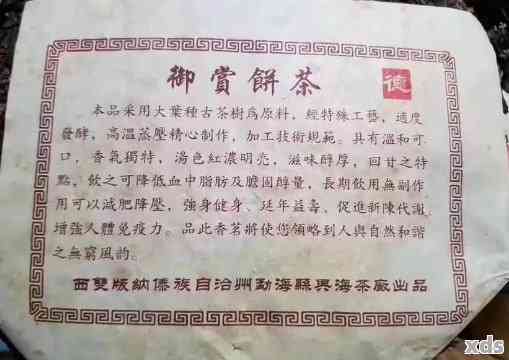 御賞餅茶
德
本品采用大葉種古茶樹爲原料，經特殊工藝，適度
發酵，高溫蒸壓精心制作，加工技術規範。具有溫和可
口，香氣獨特，湯色紅濃明亮，滋味醇厚，回甘之特
點，飲之可降低血中脂肪及膽固醇量，長期飲用無副作
用可以減肥降壓，強身健身、延年益壽、促進新陳代謝，
增強人體免疫力。品此香茗將使您領略到人與自然和諧
之無窮風韵。
西雙版納傣族自治州勐海縣興海茶廠出品
xds